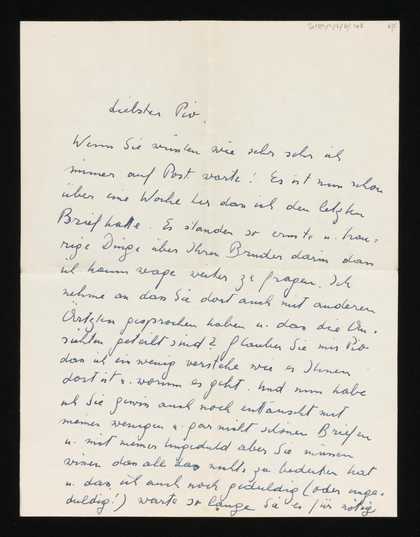 Liebster Pio.
Wenn Sie wüssten wie sehr sehr ich
immer auf Post warte! Es ist nun schon
über eine Woche her dass ich den letzten
Brief hatte. Es standen so ernste u. trau-
rige Dinge über Ihren Bruder darin dass
ich kaum wage weiter zu fragen. Ich
nehme an dass Sie dort auch mit anderen
Ärzten gesprochen haben u. dass die An-
sichten geteilt sind? Glauben Sie mir Pio
dass ich ein wenig verstehe wie es Ihnen
dort ist u. worum es geht. Und nun habe
ich Sie gewiss auch noch enttäuscht mit
meinen wenigen u. gar nicht schönen Briefen
u. mit meiner Ungeduld aber Sie müssen
wissen dass all das nichts zu bedeuten hat
u. dass ich auch noch geduldig (oder unge-
duldig!) warte so lange Sie es für nötig